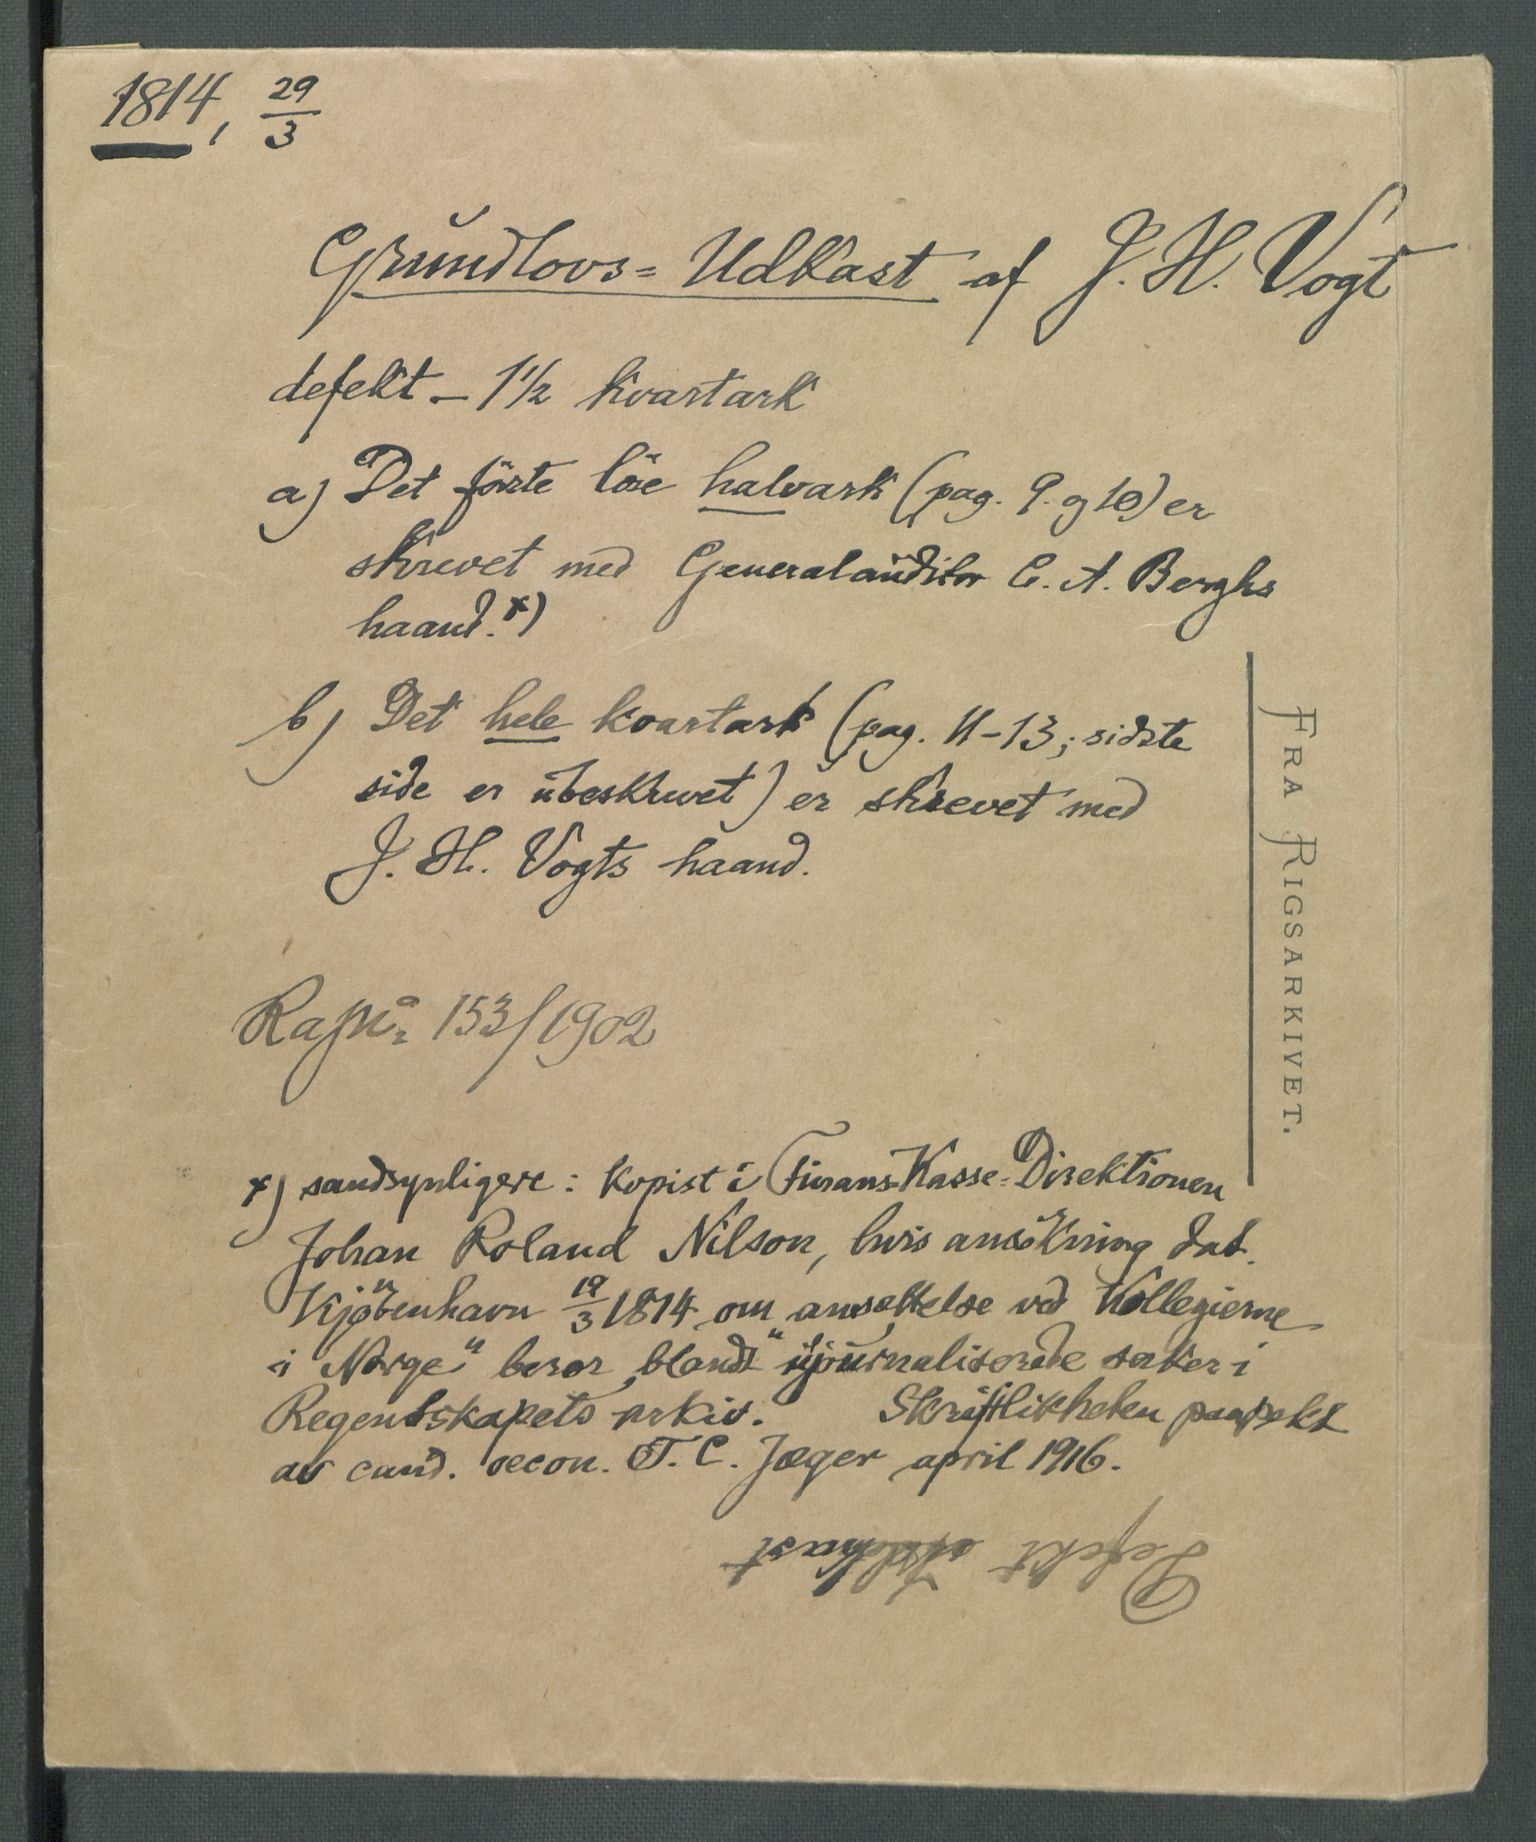 1814, 29/3
Grundlovs=Udkast af J. H. Vogt
defekt – 1 1/2 kvartark
a) Det förste löse halvark (pag. 9. og 10) er
skrevet med Generalauditör C. A. Berghs
haand. x)
b) Det hele kvartark (pag. 11–13; sidste
side er ubeskrevet) er skrevet med
J. H. Vogts haand.
FRA RIGSARKIVET.
153/1902
x) sandsynligere: kopist i Finans-Kasse-Direktionen
Johan Roland Nilson, hvis ansökning dat.
"Kjöbenhavn 19/3 1814 om ansættelse ved Kollegierne
i Norge" beror blandt "ujournaliserede saker i
Regentskapets arkiv. Skriftlikheten paapekt
av cand. oecon. T. C. Jæger april 1916.
Defekt Udkast